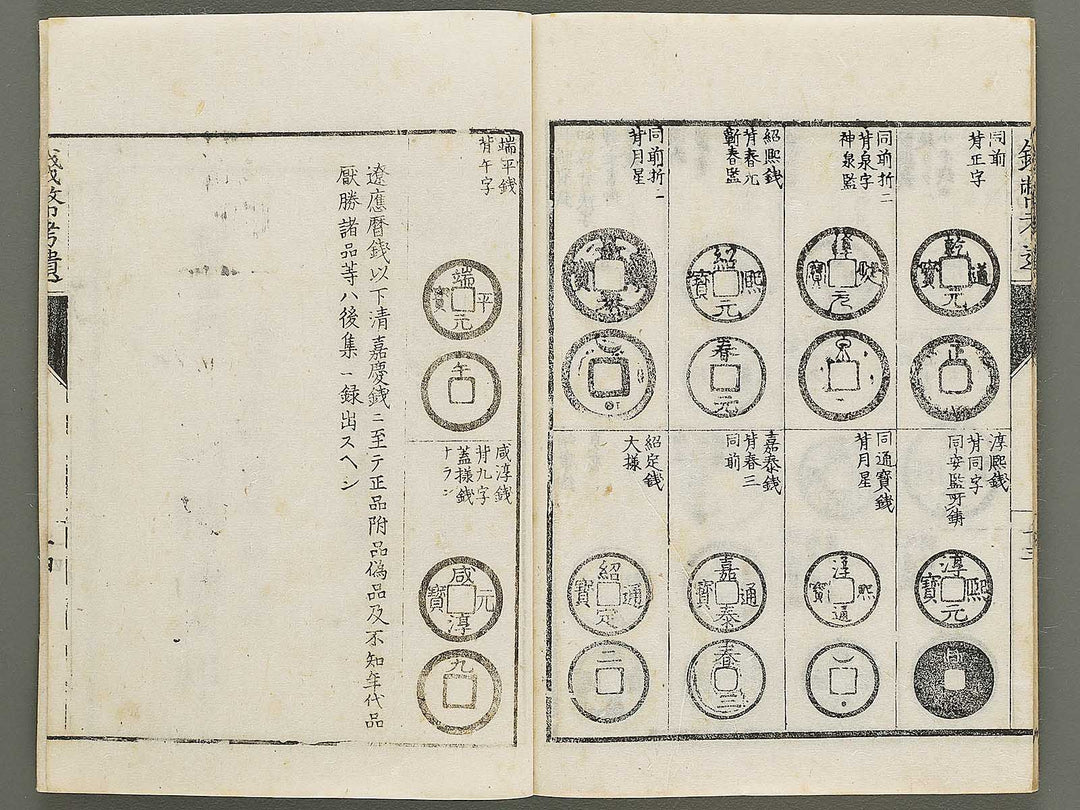 同前
背正字
乾道元寳
正
淳熙錢
背同字
同安監所鋳
淳熙元寳
同
同前折二
背泉字
神泉監
淳熙元寳
泉
同通寳錢
背月星
淳熙通寳
紹熙錢
背春元
蘄春監
紹熙元寳
春元
嘉泰錢
背春三
同前
嘉泰通寳
春三
同前折一
背月星
紹定錢
大様
紹定通寳
二
端平錢
背午字
端平元寳
午
咸淳錢
背九字
蓋様錢
ナラン
咸淳元寳
九
遼應暦錢以下清嘉慶錢ニ至テ正品附品偽品及不知年代品
厭勝諸品等ハ後集ニ録出スヘシ
錢幣考遺